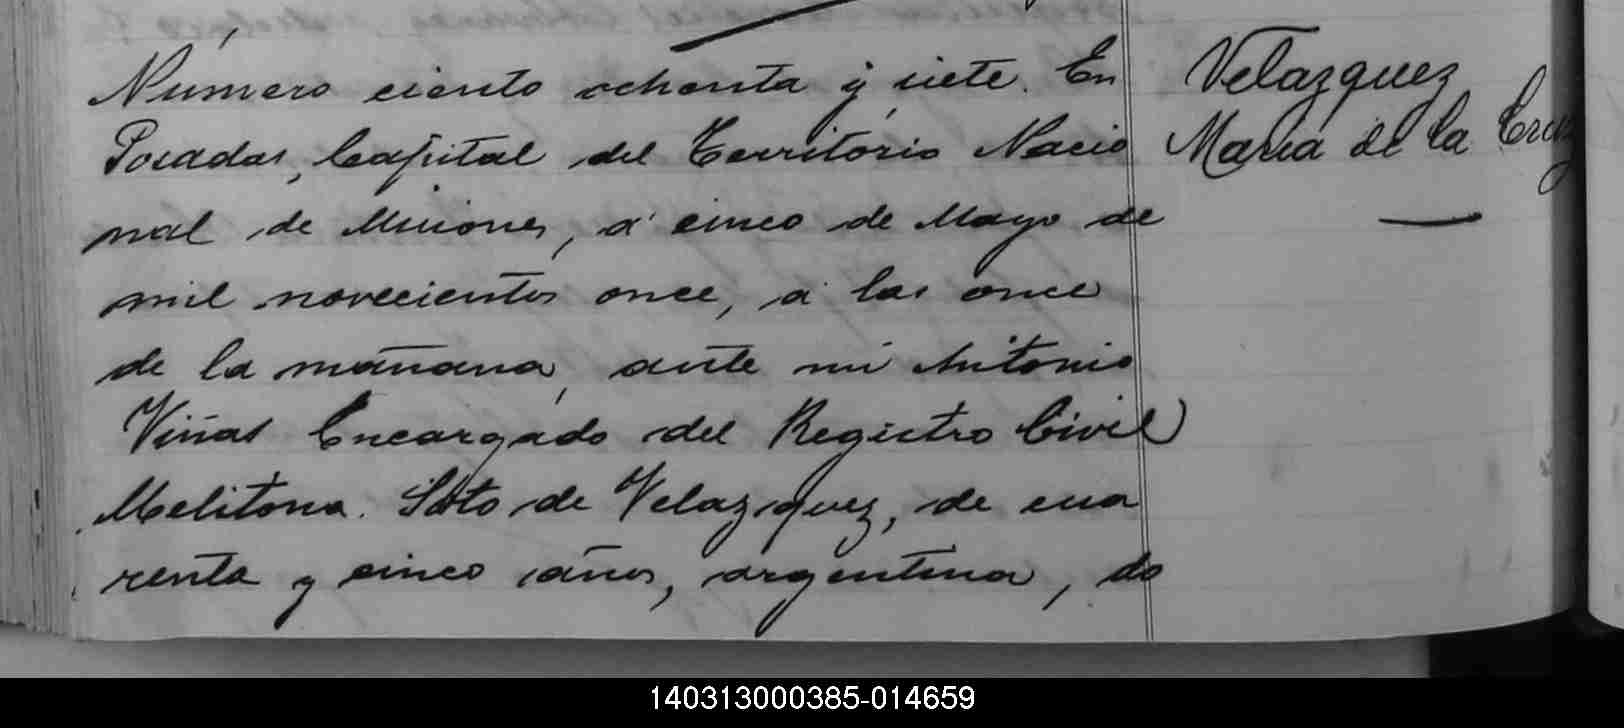 Número ciento ochenta y siete. En
Posadas, Capital del Territorio Nacio
nal de Misiones, á cinco de Mayo de
mil novecientos once, á las once
de la mañana, ante mi Antonio
Viñas Encargado del Registro Civil
Melitona Soto de Velazquez, de cua
renta y cinco años, argentina, do
Velazquez
Maria de la Cruz
140313000385-014659